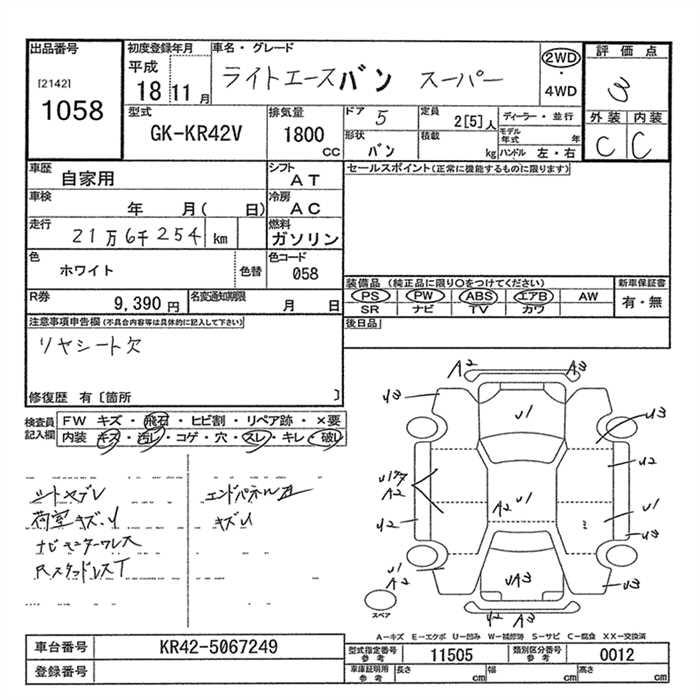 出品番号
[2142]
1058
初度登録年月
平成
18 11 月
車名・グレード
ライトエースバン スーパー
2WD
・
4WD
評価点
3
外装 内装
C C
型式
GK-KR42V
排気量
1800
cc
ドア 5
定員
2[5]人
ディーラー・並行
形状
バン
積載
kg
モデル年式 年
ハンドル 左・右
車歴
自家用
シフト
AT
セールスポイント(正常に機能するものに限ります)
車検
年 月( 日)
冷房
AC
走行
21万6千254 km
燃料
ガソリン
色
ホワイト
色替
色コード
058
装備品 (純正品に限り○をつけてください)
PS PW ABS エアB AW
SR ナビ TV カワ
新車保証書
有・無
R券
9,390 円
名変通知期限
月 日
後日品
注意事項申告欄(不具合内容等は具体的に記入して下さい)
リヤシート欠
修復歴 有〔箇所 〕
検査員
記入欄
FW キズ・飛石・ヒビ割・リペア跡・×要
内装 キズ・汚レ・コゲ・穴・スレ・キレ・破レ
シートヤブレ
荷室キズ・U
ナビモニターワレス
RスタッドレスT
エンドパネル
キズU
A2 A3
U3 U1 U3
A2 U2
U2 A2 U1 U1
U3
U1
A2 UA3 U3
U2 A3
スペア
A-キズ E-エクボ U-凹み W-補修跡 S-サビ C-腐食 XX-交換済
車台番号
KR42-5067249
登録番号
型式指定番号
参考
11505
類別区分番号
参考
0012
車庫証明用
参考
長さ cm
幅 cm
高さ cm